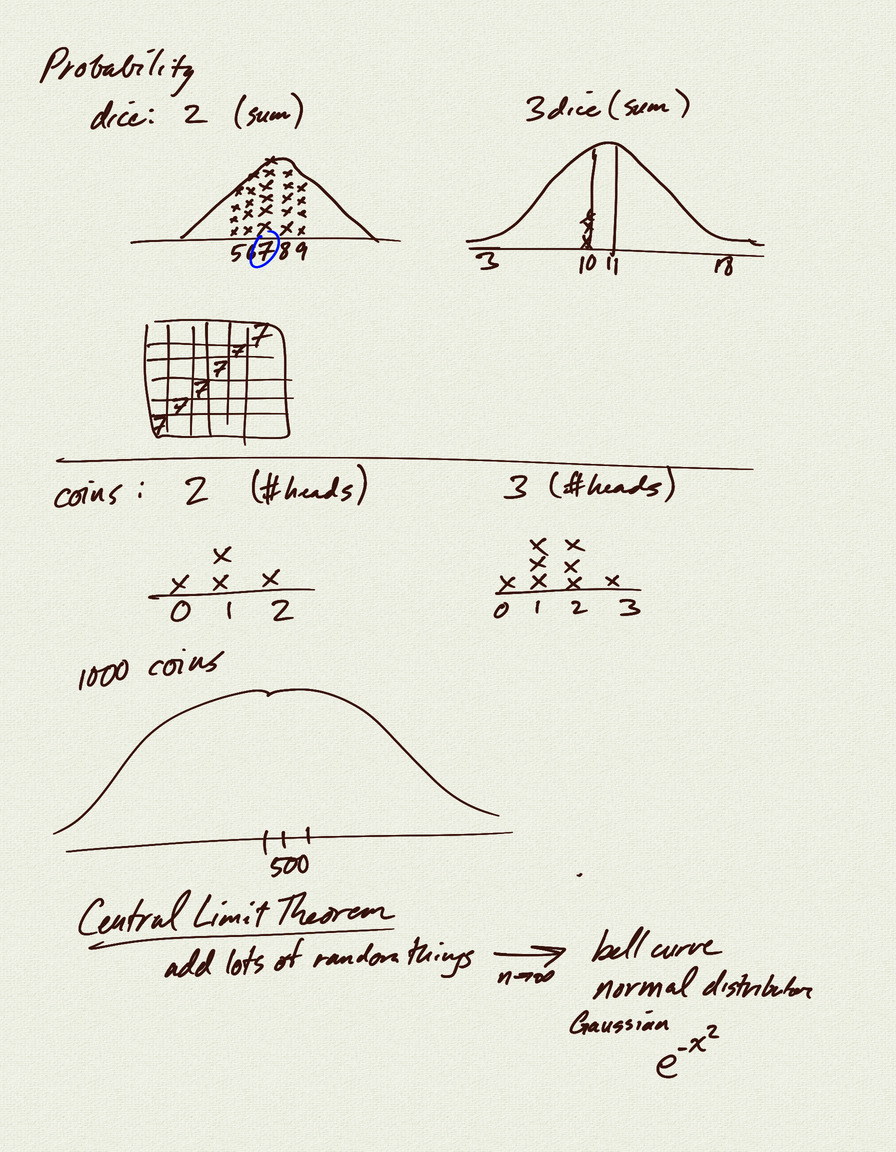 Probability
dice: 2 (sum)
3 dice (sum)
5 6 7 8 9
3 10 11 18
7
7
7
7
7
7
coins: 2 (#heads)
3 (#heads)
0 1 2
0 1 2 3
1000 coins
500
Central Limit Theorem
add lots of random things
n→∞
bell curve
normal distribution
Gaussian
e^-x^2